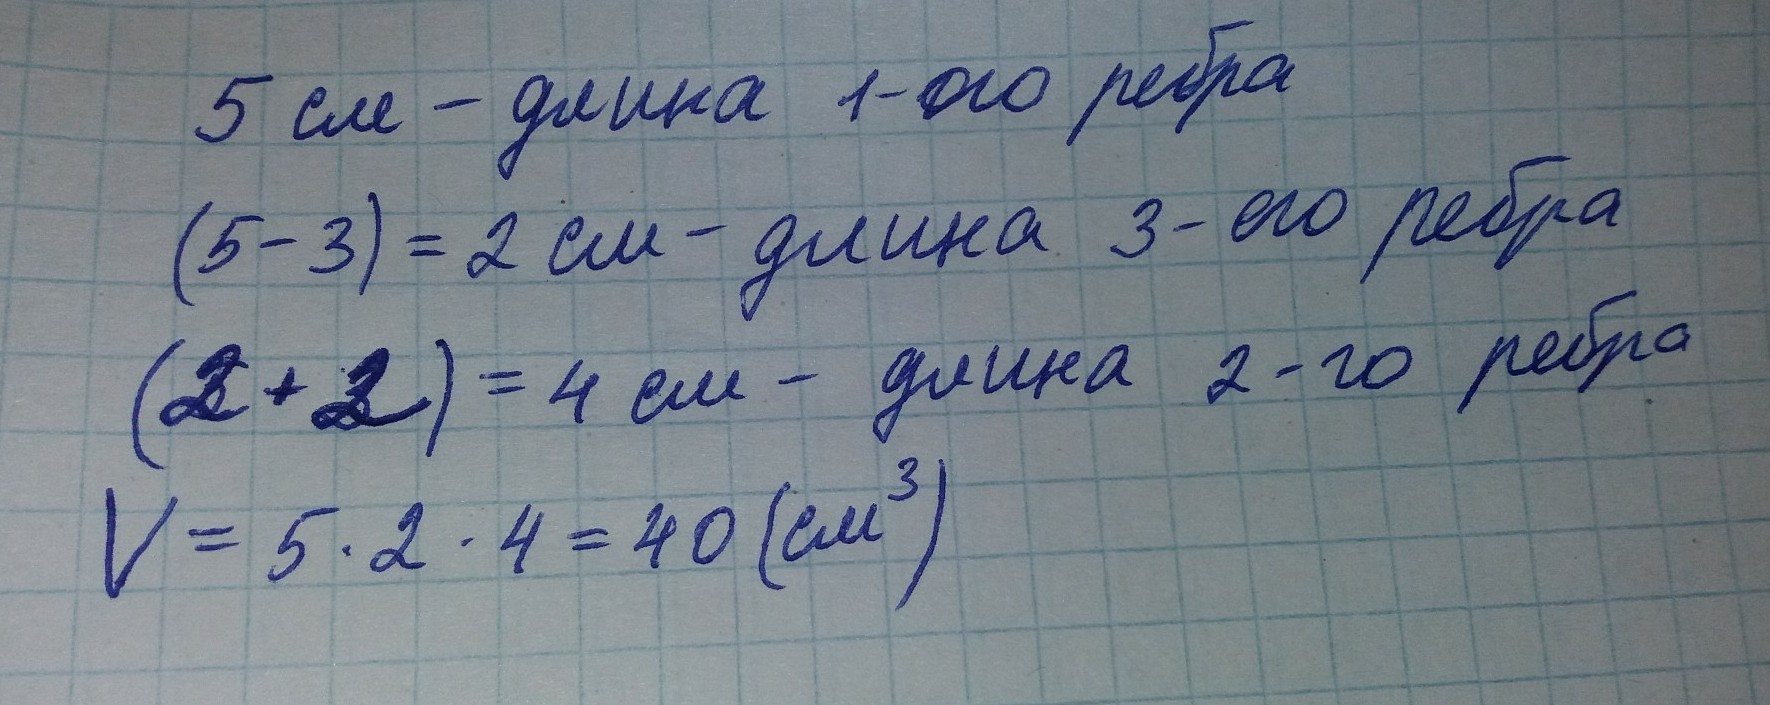 5 см - длина 1-ого ребра
(5-3) = 2 см - длина 3-его ребра
(2+2) = 4 см - длина 2-го ребра
V = 5 · 2 · 4 = 40 (см³)